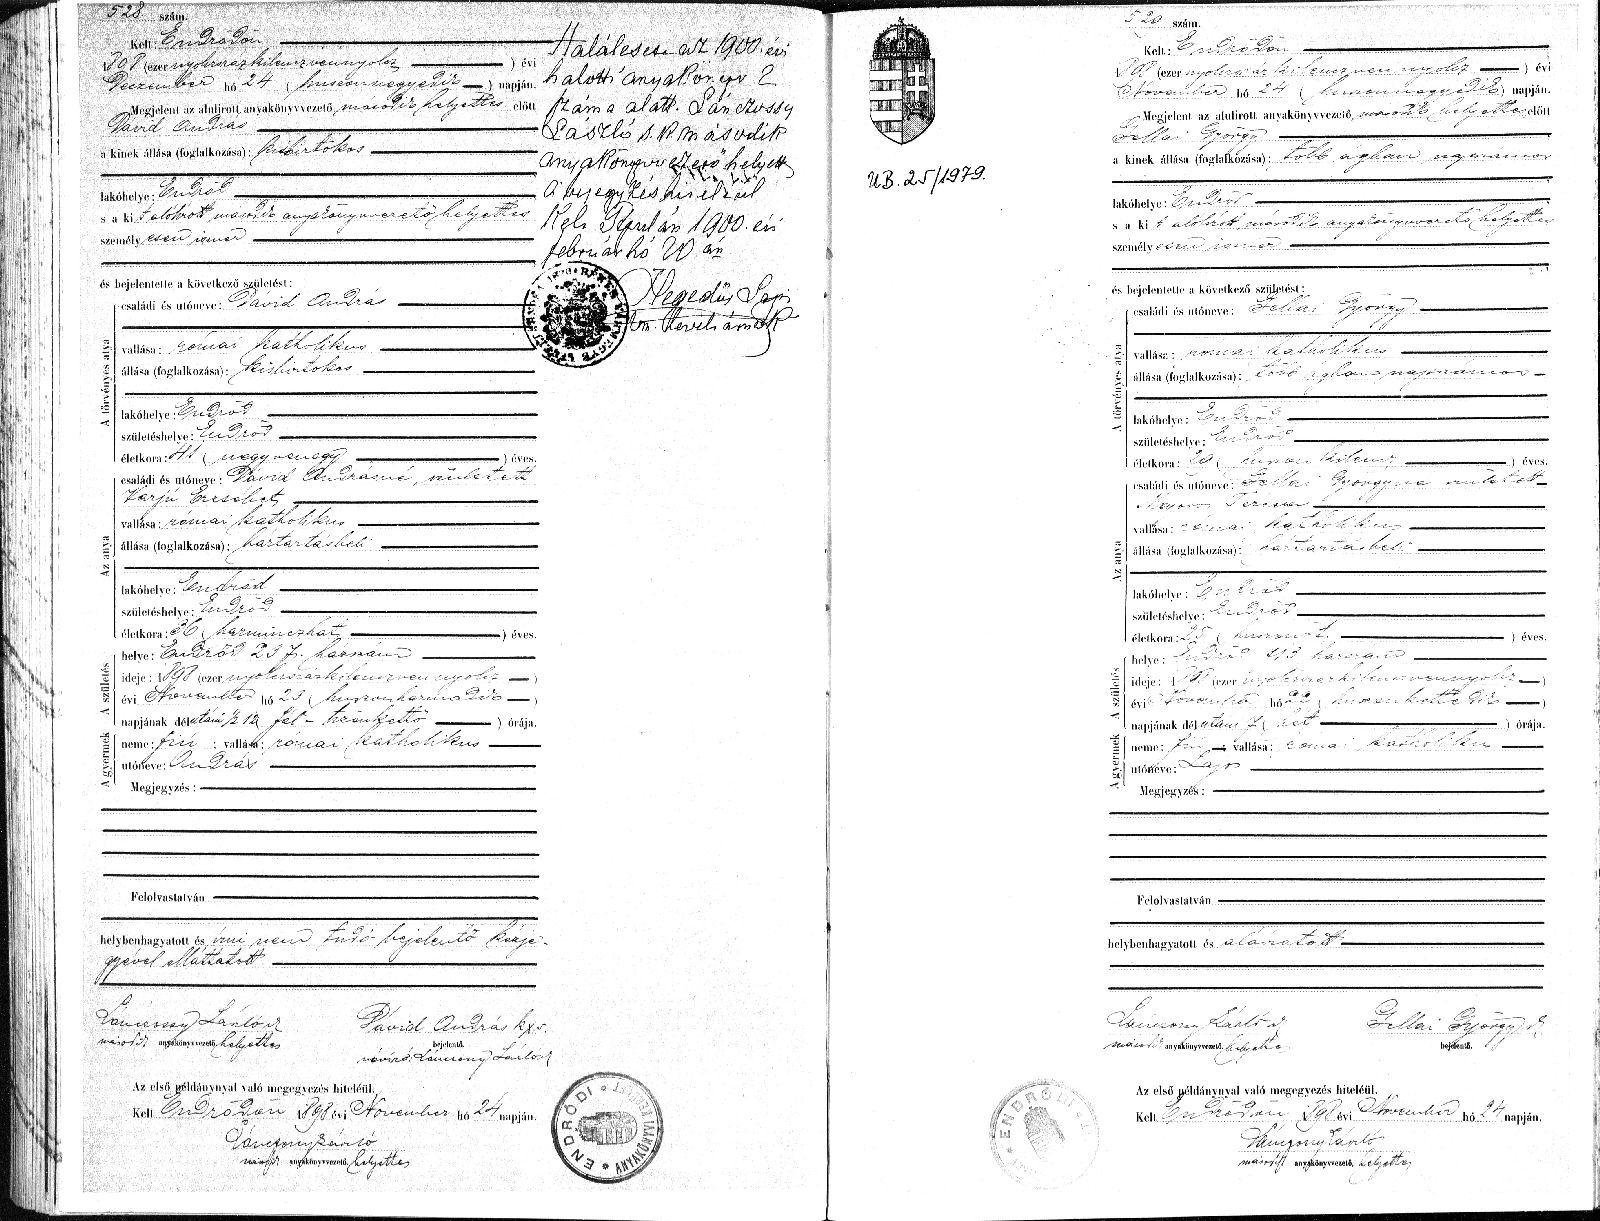 528 szám.
Kelt: Endrődön
898 (ezer nyolczszázkilenczvennyolcz ) évi
Deczember hó 24 ( huszonnegyedik ) napján.
Megjelent az alulirott anyakönyvvezető, második helyettes előtt
Dávid András
a kinek állása (foglalkozása): kisbirtokos
lakóhelye: Endrőd
s a kit alólirott második anyakönyvvezető helyettes
személyesen ismer
és bejelentette a következő születést:
A törvényes atya
családi és utóneve: Dávid András
vallása: római katholikus
állása (foglalkozása): kisbirtokos
lakóhelye: Endrőd
születéshelye: Endrőd
életkora: 41 ( negyvenegy ) éves.
Az anya
családi és utóneve: Dávid Andrásné, született
Varjú Erzsébet
vallása: római katholikus
állása (foglalkozása): háztartásbeli
lakóhelye: Endrőd
születéshelye: Endrőd
életkora: 36 ( harminczhat ) éves.
A születés
helye: Endrőd 23 f. házszám
ideje: 898 (ezer nyolczszázkilenczvennyolcz )
évi November hó 23 ( huszonharmadik )
napjának délutáni ½ 12 fél-tizenkettő ) órája.
A gyermek
neme: fiú ; vallása: római katholikus
utóneve: András
Megjegyzés:
Felolvastatván
helybenhagyatott és írni nem tudó bejelentő kézje-
gyével elláttatott
Lánczossy László sk
második anyakönyvvezető. helyettes
Dávid András kxv.
bejelentő.
névíró: Lánczossy László sk
Az első példánynyal való megegyezés hiteléül.
Kelt Endrődön 898 évi November hó 24 napján.
Lánczossy László
második anyakönyvvezető. helyettes
ENDRŐDI
Halálesete az 1900. évi
halotti anyakönyv 2
száma alatt. Lánczossy
László s.k. második
anyakönyvvezető helyett.
A bejegyzés hiteléül
Kelt Gyulán 1900. évi
február hó 20 án
Hegedűs
520 szám.
Kelt: Endrődön
(ezer nyolczszázkilenczvennyolcz ) évi
November hó 24 ( huszonnegyedik ) napján.
Megjelent az alulirott anyakönyvvezető, második helyettes előtt
Gellai György
a kinek állása (foglalkozása): több ágban napszámos
lakóhelye: Endrőd
s a kit alólirott második anyakönyvvezető helyettes
személyesen ismer
és bejelentette a következő születést:
A törvényes atya
családi és utóneve: Gellai György
vallása: római katholikus
állása (foglalkozása): több ágban napszámos
lakóhelye: Endrőd
születéshelye: Endrőd
életkora: 29 ( huszonkilencz ) éves.
Az anya
családi és utóneve: Gellai Györgyné született
Teréz
vallása: római katholikus
állása (foglalkozása): háztartásbeli
lakóhelye: Endrőd
születéshelye: Endrőd
életkora: 25 ( huszonöt ) éves.
A születés
helye: Endrőd 413 házszám
ideje: (ezer nyolczszázkilenczvennyolcz )
évi November hó 22 ( huszonkettedik )
napjának délutáni 7 ( hét ) órája.
A gyermek
neme: fiú ; vallása: római katholikus
utóneve: Lajos
Megjegyzés:
Felolvastatván
helybenhagyatott és aláíratott
Lánczossy László sk
második anyakönyvvezető. helyettes
Gellai György sk
bejelentő.
Az első példánynyal való megegyezés hiteléül.
Kelt Endrődön 898 évi November hó 24 napján.
Lánczossy László
második anyakönyvvezető. helyettes
ENDRŐDI
UB. 25/1979.